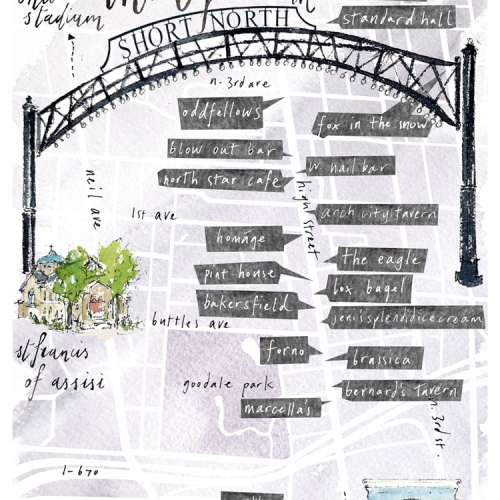 stadium
standard hall
SHORT NORTH
n. 3rd ave
oddfellows
fox in the snow
blow out bar
w nail bar
north star cafe
neil ave
high street
1st ave
arch city tavern
homage
the eagle
pint house
box bagel
bakersfield
jeni's splendid icecream
buttles ave
forno
st francis
of assisi
brassica
goodale park
bernard's Tavern
marcella's
n. 3rd st.
1-670